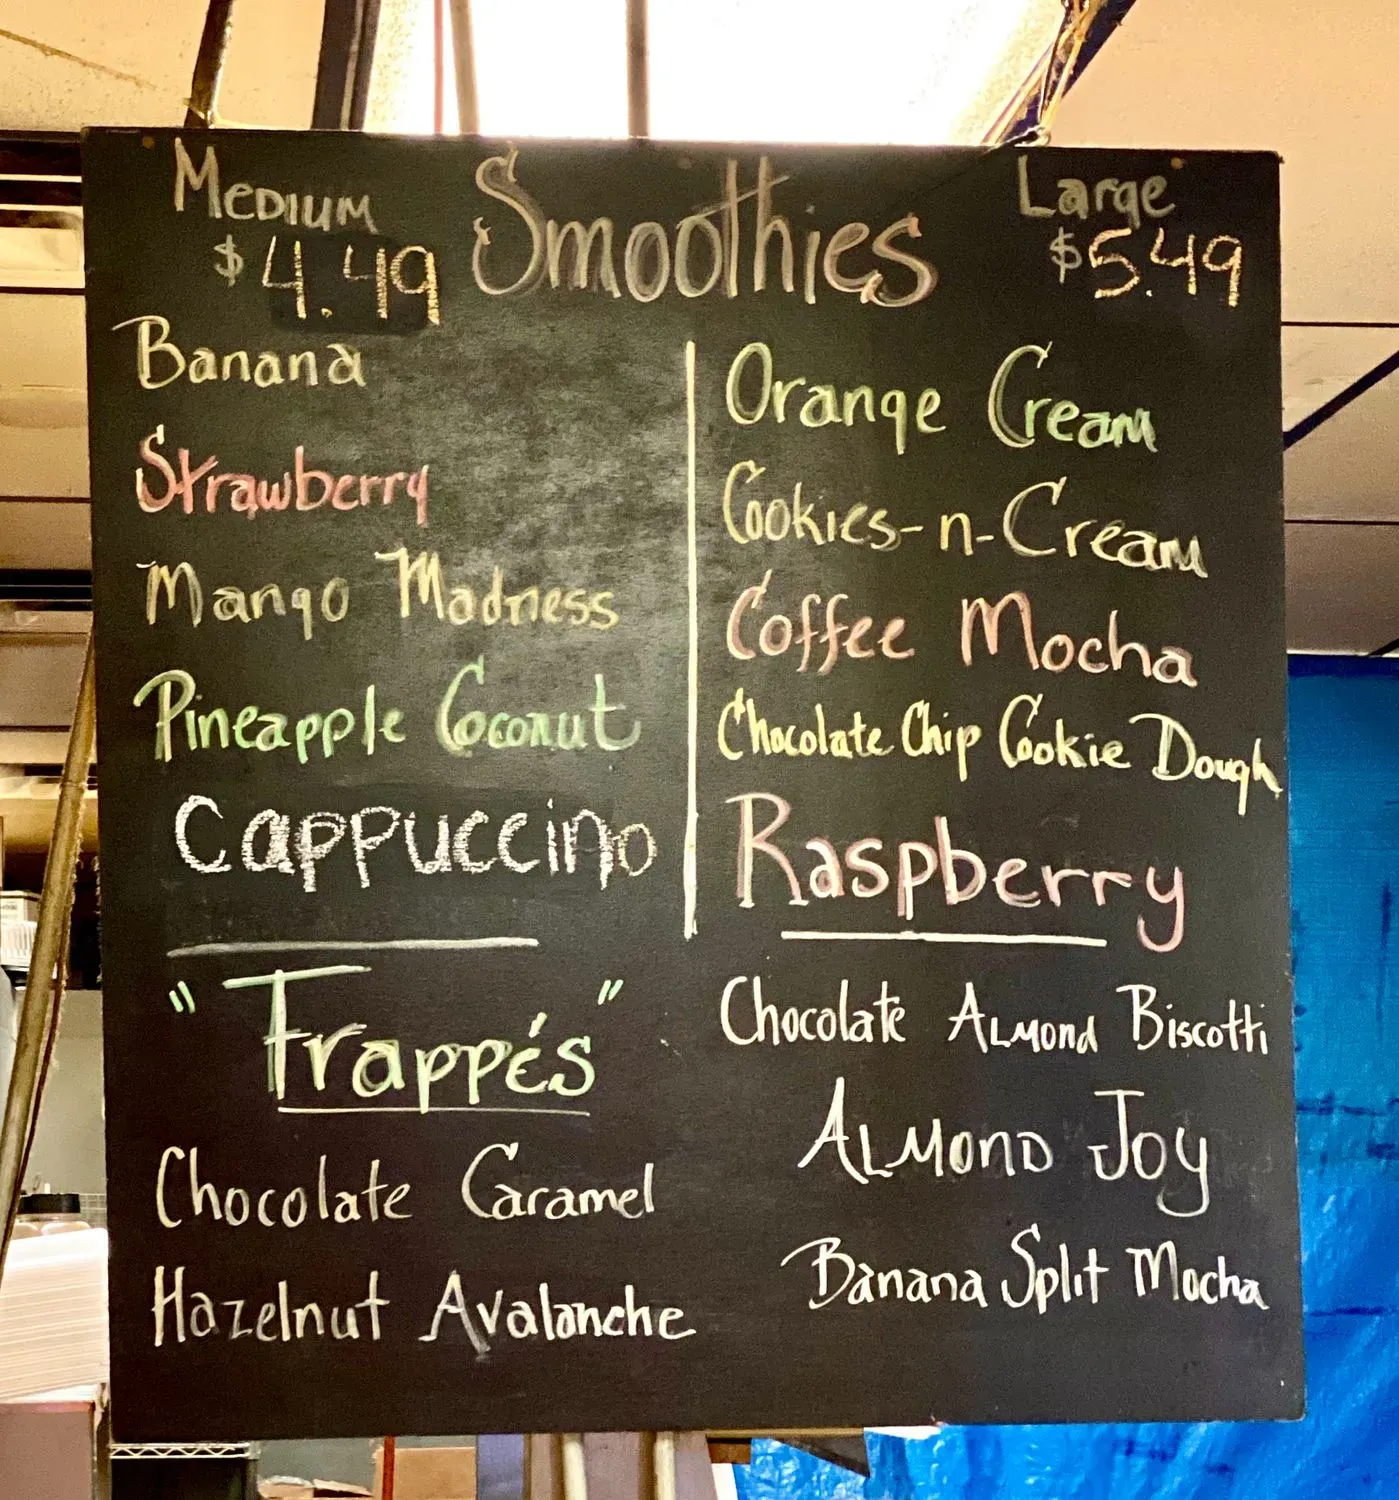 Medium Smoothies Large
$4.49 $5.49
Banana
Strawberry
Mango Madness
Pineapple Coconut
Cappuccino
Orange Cream
Cookies-n-Cream
Coffee Mocha
Chocolate Chip Cookie Dough
Raspberry
"Frappés"
Chocolate Caramel
Hazelnut Avalanche
Chocolate Almond Biscotti
Almond Joy
Banana Split Mocha